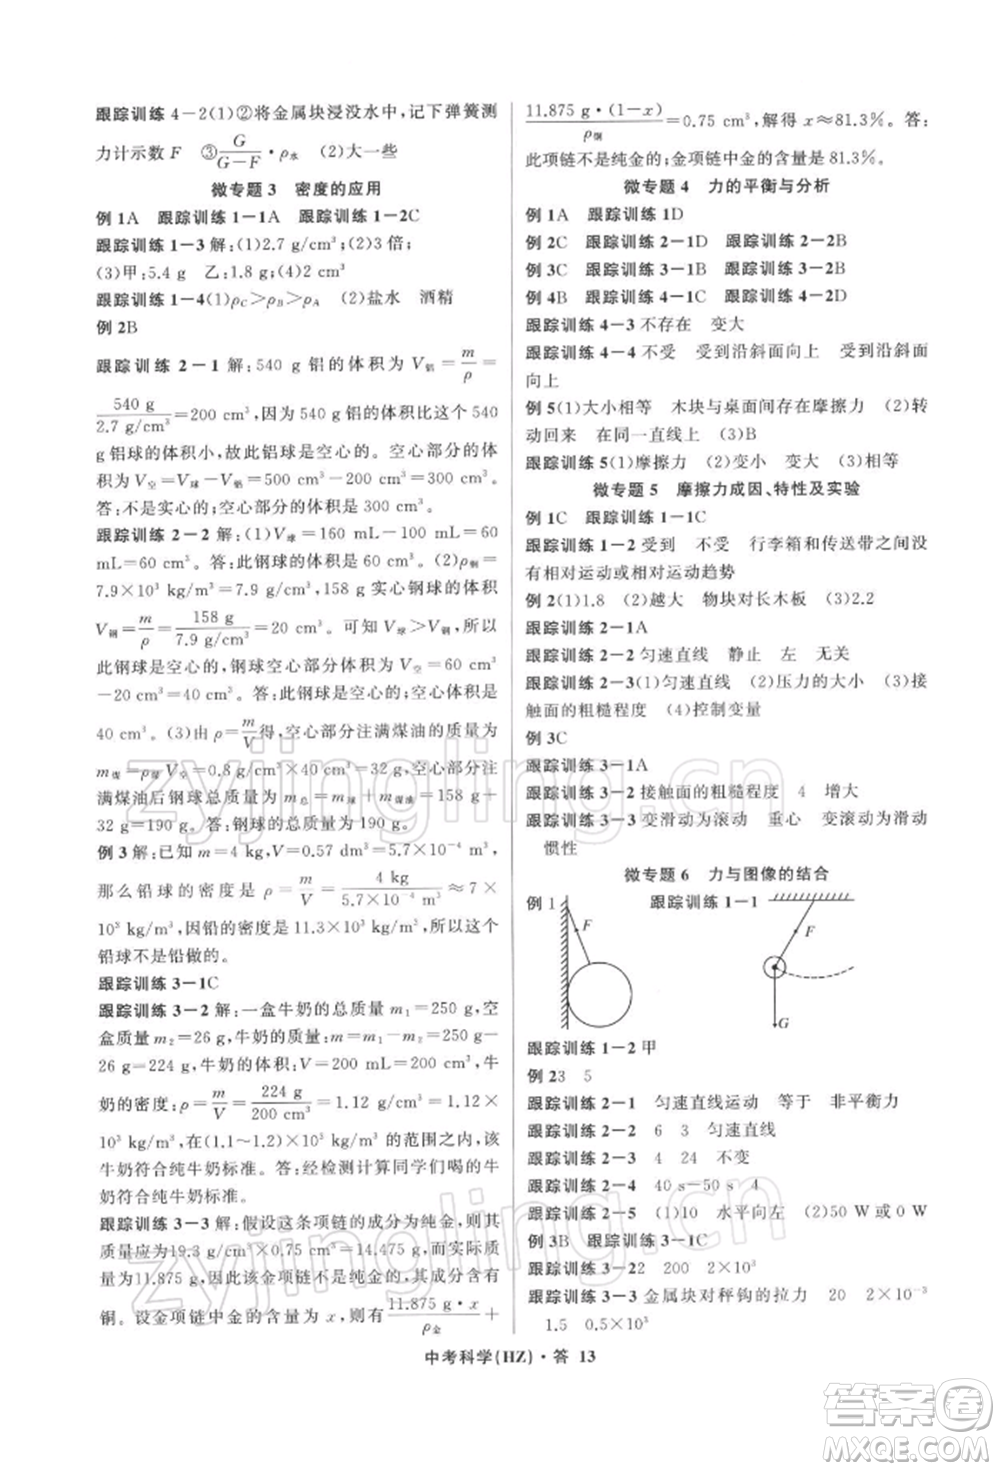 跟踪训练 4－2(1)②将金属块浸没水中,记下弹簧测
力计示数 F　③G/(G－F)·ρ水　(2)大一些
微专题 3　密度的应用
例 1A　跟踪训练 1－1A　跟踪训练 1－2C
跟踪训练 1－3 解:(1)2.7 g/cm³;(2)3 倍;
(3)甲:5.4 g　乙:1.8 g;(4)2 cm³
跟踪训练 1－4(1)ρC＞ρB＞ρA　(2)盐水　酒精
例 2B
跟踪训练 2－1 解:540 g 铝的体积为 V铝＝m/ρ＝
540 g/2.7 g/cm³＝200 cm³,因为 540 g 铝的体积比这个 540
g 铝球的体积小,故此铝球是空心的;空心部分的体
积为 V空＝V球－V铝＝500 cm³－200 cm³＝300 cm³。
答:不是实心的;空心部分的体积是 300 cm³。
跟踪训练 2－2 解:(1)V球＝160 mL－100 mL＝60
mL＝60 cm³。答:此钢球的体积是 60 cm³。(2)ρ钢＝
7.9×10³ kg/m³＝7.9 g/cm³,158 g 实心钢球的体积
V钢＝m/ρ＝158 g/7.9 g/cm³＝20 cm³。可知 V球＞V钢,所以
此钢球是空心的;钢球空心部分的体积 V空＝60 cm³
－20 cm³＝40 cm³。答:此钢球是空心的;空心体积是
40 cm³。(3)由 ρ＝m/V得,空心部分注满煤油的质量为
m煤＝ρ煤V空＝0.8 g/cm³×40 cm³＝32 g,空心部分注
满煤油后钢球总质量为 m总＝m球＋m煤油＝158 g＋
32 g＝190 g。答:钢球的总质量为 190 g。
例 3 解:已知 m＝4 kg,V＝0.57 dm³＝5.7×10⁻⁴ m³,
那么铅球的密度 ρ＝m/V＝4 kg/5.7×10⁻⁴ m³≈7×
10³ kg/m³,因铅的密度是 11.3×10³ kg/m³,所以该
铅球不是铅做的。
跟踪训练 3－1C
跟踪训练 3－2 解:一盒牛奶的总质量 m₁＝250 g,空
盒质量 m₂＝26 g,牛奶的质量 m＝m₁－m₂＝250 g－
26 g＝224 g,牛奶的体积:V＝200 mL＝200 cm³,牛
奶的密度:ρ＝m/V＝224 g/200 cm³＝1.12 g/cm³,因为 1.12
g/cm³ 在(1.1～1.2)×10³ kg/m³ 的范围之内,故该
牛奶符合纯牛奶标准。答:经检测计算同学们喝的牛
奶符合纯牛奶标准。
跟踪训练 3－3 解:假设这条项链的成分为纯金,则其
质量应为19.3 g/cm³×0.75 cm³＝14.475 g,而实际质
量为11.875 g,因此该金项链不是纯金的,而是掺入了
铜。设金项链中金的含量为 x,则有11.875 g·x/ρ金＋
11.875 g·(1－x)/ρ铜＝0.75 cm³,解得 x≈81.3%。答:
此项链不是纯金的;金项链中金的含量是 81.3%。
微专题 4　力的平衡与分析
例 1A　跟踪训练 1D
例 2C　跟踪训练 2－1D　跟踪训练 2－2B
例 3C　跟踪训练 3－1B
例 4B　跟踪训练 4－1B　跟踪训练 4－2D
跟踪训练 4－3 不存在　变大
跟踪训练 4－4 不受　受到沿斜面向上　受到沿斜面
向上
例 5(1)大小相等　木块与桌面间存在摩擦力　(2)转
动回来　在同一直线上　(3)B
跟踪训练 5(1)摩擦力　(2)变小　变大　(3)相等
微专题 5　摩擦力成因、特性及实验
例 1C　跟踪训练 1－1C
跟踪训练 1－2 受到　不受　行李箱和传送带之间没
有相对运动或相对运动趋势
例 2(1)1.8　(2)越大　物块对长木板　(3)2.2
跟踪训练 2－1A
跟踪训练 2－2 匀速直线　静止　左　无关
跟踪训练 2－3(1)匀速直线　(2)压力的大小　(3)接
触面的粗糙程度　(4)控制变量
例 3C
跟踪训练 3－1A
跟踪训练 3－2 接触面的粗糙程度　4　增大
跟踪训练 3－3 变滑动为滚动　重心　变滚动为滑动
惯性
微专题 6　力与图像的结合
例 1　跟踪训练 1－1
F
F
G
跟踪训练 1－2 甲
例 23　5
跟踪训练 2－1　匀速直线运动　等于　非平衡力
跟踪训练 2－2　6　3　匀速直线
跟踪训练 2－3　4　24　不变
跟踪训练 2－4　40 s－50 s　4
跟踪训练 2－5　(1)10　水平向左　(2)50 W或 0 W
例 3B　跟踪训练 3－1C
跟踪训练 3－22　200　2×10³
跟踪训练 3－3 金属块对秤钩的拉力　20　2×10⁻³
1.5　0.5×10³
中考科学(HZ)·答　13
zyjingling.cn
zyjingling.cn
答案圈
MXQE.COM